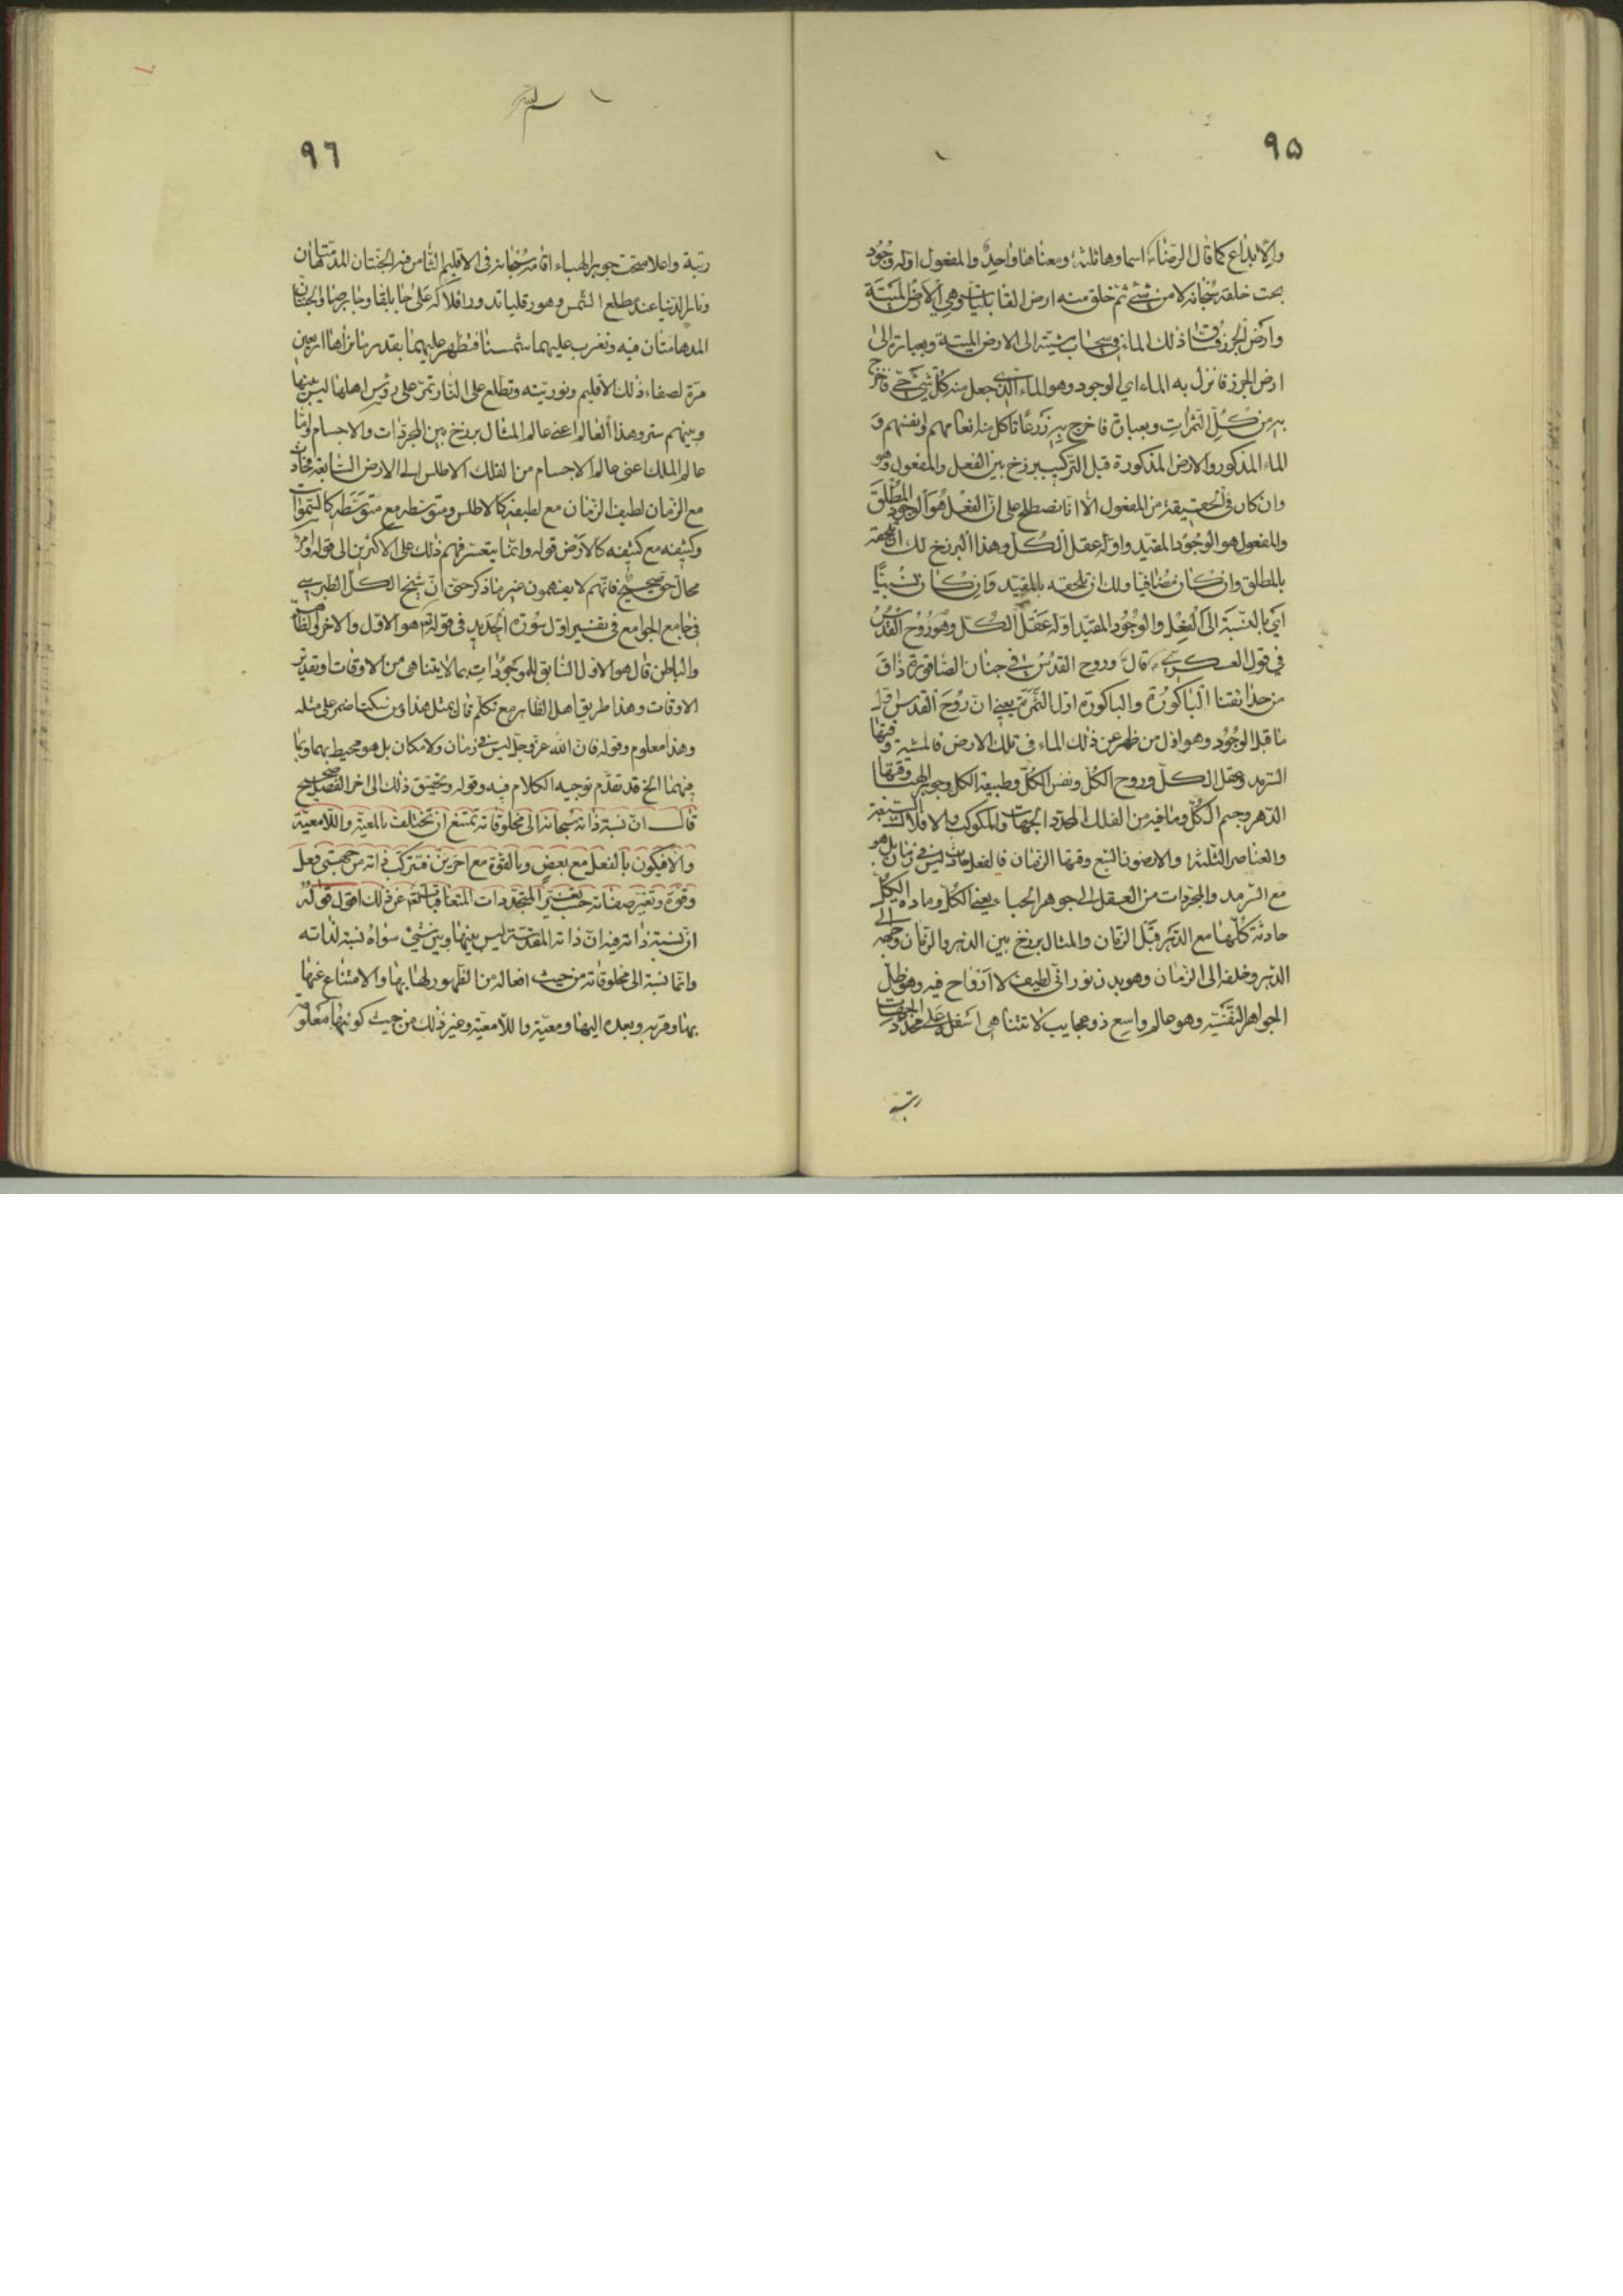 ٩٥
والابداع كما قال الرضا ء اسماوها ثلثة ومعناها واحد والمفعول اوله وجود
بحت خلقه سبحانه لا من شئ ثم خلق منه ارض القابليات وهي الارض الميتة
وارض الجرز فساق ذلك الماء في سحاب مشيته الى الارض الميتة وبعبارة الى
ارض الجرز فانزل به الماء اي الوجود وهو الماء الذي جعل منه كل شئ حي فاخرج
به من كل الثمرات وبعبارة فاخرج به زرعا تاكل منه انعامهم وانفسهم و
الماء المذكور والارض المذكورة قبل التركيب برزخ بين الفعل والمفعول وهو
وان كان في الحقيقة من المفعول الا انا نصطلح على ان الفعل هو الوجود المطلق
والمفعول هو الوجود المقيد واوله عقل الكل وهذا البرزخ لك ان تلحقه
بالمطلق وان كان مضافيا ولك ان تلحقه بالمقيد وان كان نسبيا
اي بالنسبة الى الفعل والوجود المقيد اوله عقل الكل وهو روح القدس
في قول العسكري ء قال وروح القدس في جنان الصاقورة ذاق
من حدائقنا الباكورة والباكورة اول الثمرة يعني ان روح القدس اول
ما قبل الوجود وهو اول من ظهر عن ذلك الماء في تلك الارض فالمشية وقتها
السرمد وعقل الكل وروح الكل ونفس الكل وطبيعة الكل وجوهر الهباء وقتها
الدهر وجسم الكل وما فيه من الفلك المحدد الجهات والمكوكب والافلاك السبعة
والعناصر الثلثة والارضون السبع وقتها الزمان فالفعل حادث ليس في زمان بل هو
مع السرمد والمجردات من العقل الى جوهر الهباء يعني الكل ومادة الكل
حادثة كلها مع الدهر قبل الزمان والمثال برزخ بين الدهر والزمان وجهه الى
الدهر وخلفه الى الزمان وهو بدن نوراني لطيف لا ارواح فيه وهو ظل
الجواهر النفسية وهو عالم واسع ذو عجايب لا تتناهى اسفله على محدد الجهات
رتبة
٩٦
رتبة واعلاه تحت جوهر الهباء اقامه سبحانه في الاقليم الثامن فيه الجنتان المدهامتان
ونار الدنيا عند مطلع الشمس وهورقليا تدور افلاكه على جابلقا وجابرصا والجنتان
المدهامتان فيه وتغرب عليهما شمسنا فتظهر عليهما بقدر ما نراها اربعين
مرة لصفاء ذلك الاقليم ونوريته وتطلع على النار تمر على رؤس اهلها ليس بينها
وبينهم ستر وهذا العالم اعني عالم المثال برزخ بين المجردات والاجسام واما
عالم الملك اعني عالم الاجسام من الفلك الاطلس الى الارض السابعة فحادث
مع الزمان لطيف الزمان مع لطيفه كالاطلس ومتوسطه مع متوسطه كالسموات
وكثيفه مع كثيفه كالارض قوله وانما يتعسر فهم ذلك على الاكثرين الى قوله وامر
محال حق صحيح فانهم لا يفهمون غير ما ذكر حتى ان شيخ الكل الطبرسي
في جامع الجوامع في تفسير اول سورة الحديد في قوله تعم هو الاول والاخر والظاهر
والباطن قال هو الاول السابق للموجودات بما لا يتناهى من الاوقات او تقدير
الاوقات وهذا طريق اهل الظاهر مع تكلم قال بمثل هذا ومن سكت اضمر على مثله
وهذا معلوم وقوله فان الله عز وجل ليس في زمان ولا مكان بل هو محيط بهما وبما
فيهما الخ قد تقدم توجيه الكلام فيه وقوله وتحقيق ذلك الى اخر الفصل صحيح
قال ان نسبة ذاته سبحانه الى مخلوقاته تمتنع ان تختلف بالمعية واللامعية
والا فيكون بالفعل مع بعض وبالقوة مع اخرين فتتركب ذاته من جهتي فعل
وقوة وتغير صفاته حسب تغير المتجددات المتعاقبات تعم عن ذلك اقول قوله
ان نسبة ذاته فيه ان ذاته المقدسة ليس بينها وبين شئ سواه نسبة لذاته
وانما نسبة الى مخلوقاته من حيث افعاله من الظهور لها بها والامتناع عنها
بها وقربه وبعده اليها ومعيته واللامعية وغير ذلك من حيث كونها معلومة